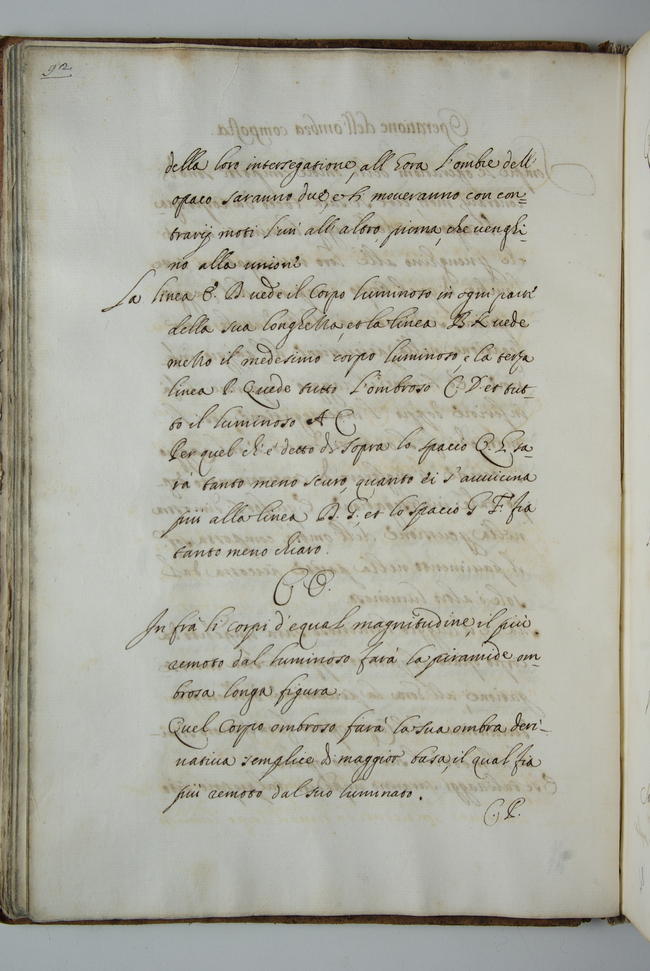 92
della loro intersegatione, all'hora l'ombre dell'
opaco saranno due, e si moveranno con con-
trarij moti l'un' all' altro, prima, che venghi-
no alla unione
La linea B. vede il Corpo luminoso in ogni parte
della sua longhezza, et la linea B K vede
mezzo il medesimo corpo luminoso, e la terza
linea vede tutto l'ombroso C. D. et tut-
to il luminoso A C
Per quel ch' è detto di sopra lo spacio G. E sa-
rà tanto meno scuro, quanto ei s'avvicina
più alla linea B. G. et lo spacio G F. fia
tanto meno chiaro.
In fra li corpi d'equal magnitudine, il più
remoto dal luminoso farà la piramide om-
brosa longa figura.
Quel Corpo ombroso farà la sua ombra deri-
vativa semplice di maggior basa, il qual fia
più remoto dal suo luminato.